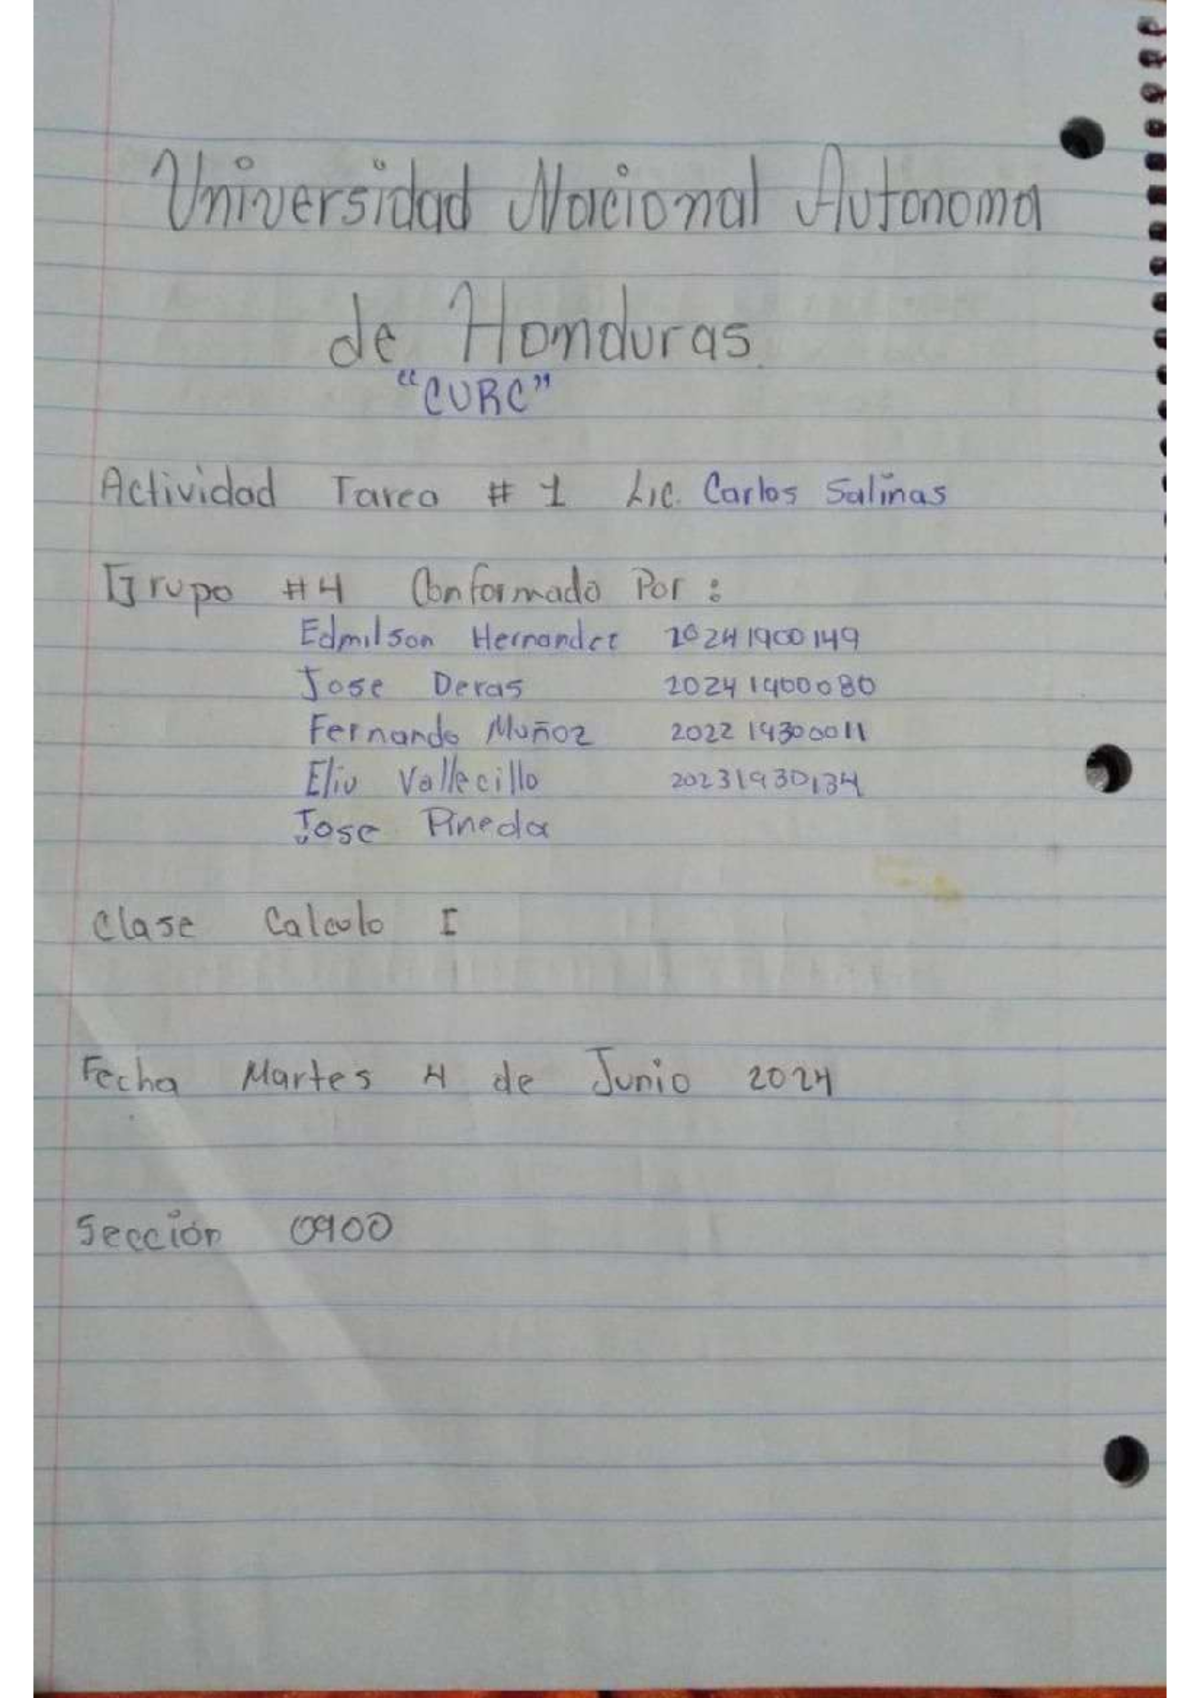 Universidad Nacional Autonoma
de Honduras.
"CURC"
Actividad Tarea # 1 Lic. Carlos Salinas
Grupo #4 Conformado Por :
Edmilson Hernandez 20241900149
Jose Deras 20241900080
Fernando Muñoz 20221930011
Eliu Vallecillo 20231930134
Jose Pineda
Clase Calculo I
Fecha Martes 4 de Junio 2024
Sección 0900